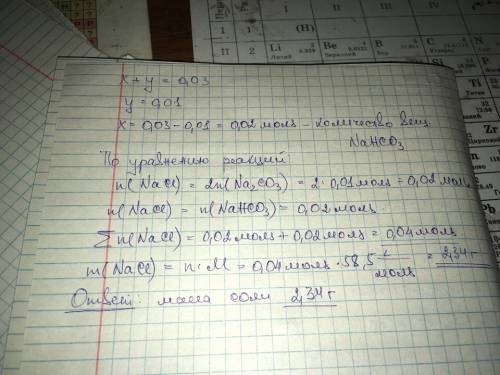 I II III
(H)
II 2 Li Литий Be Бериллий B C
x + y = 0,03
y = 0,01
x = 0,03 - 0,01 = 0,02 моль - количество вещ.
NaHCO3
По уравнению реакций
n(NaCl) = 2n(Na2CO3) = 2·0,01моль = 0,02 моль
n(NaCl) = n(NaHCO3) = 0,02 моль.
∑n(NaCl) = 0,02моль + 0,02моль = 0,04моль
m(NaCl) = n·M = 0,04моль · 58,5 г/моль = 2,34 г
Ответ: масса соли 2,34 г